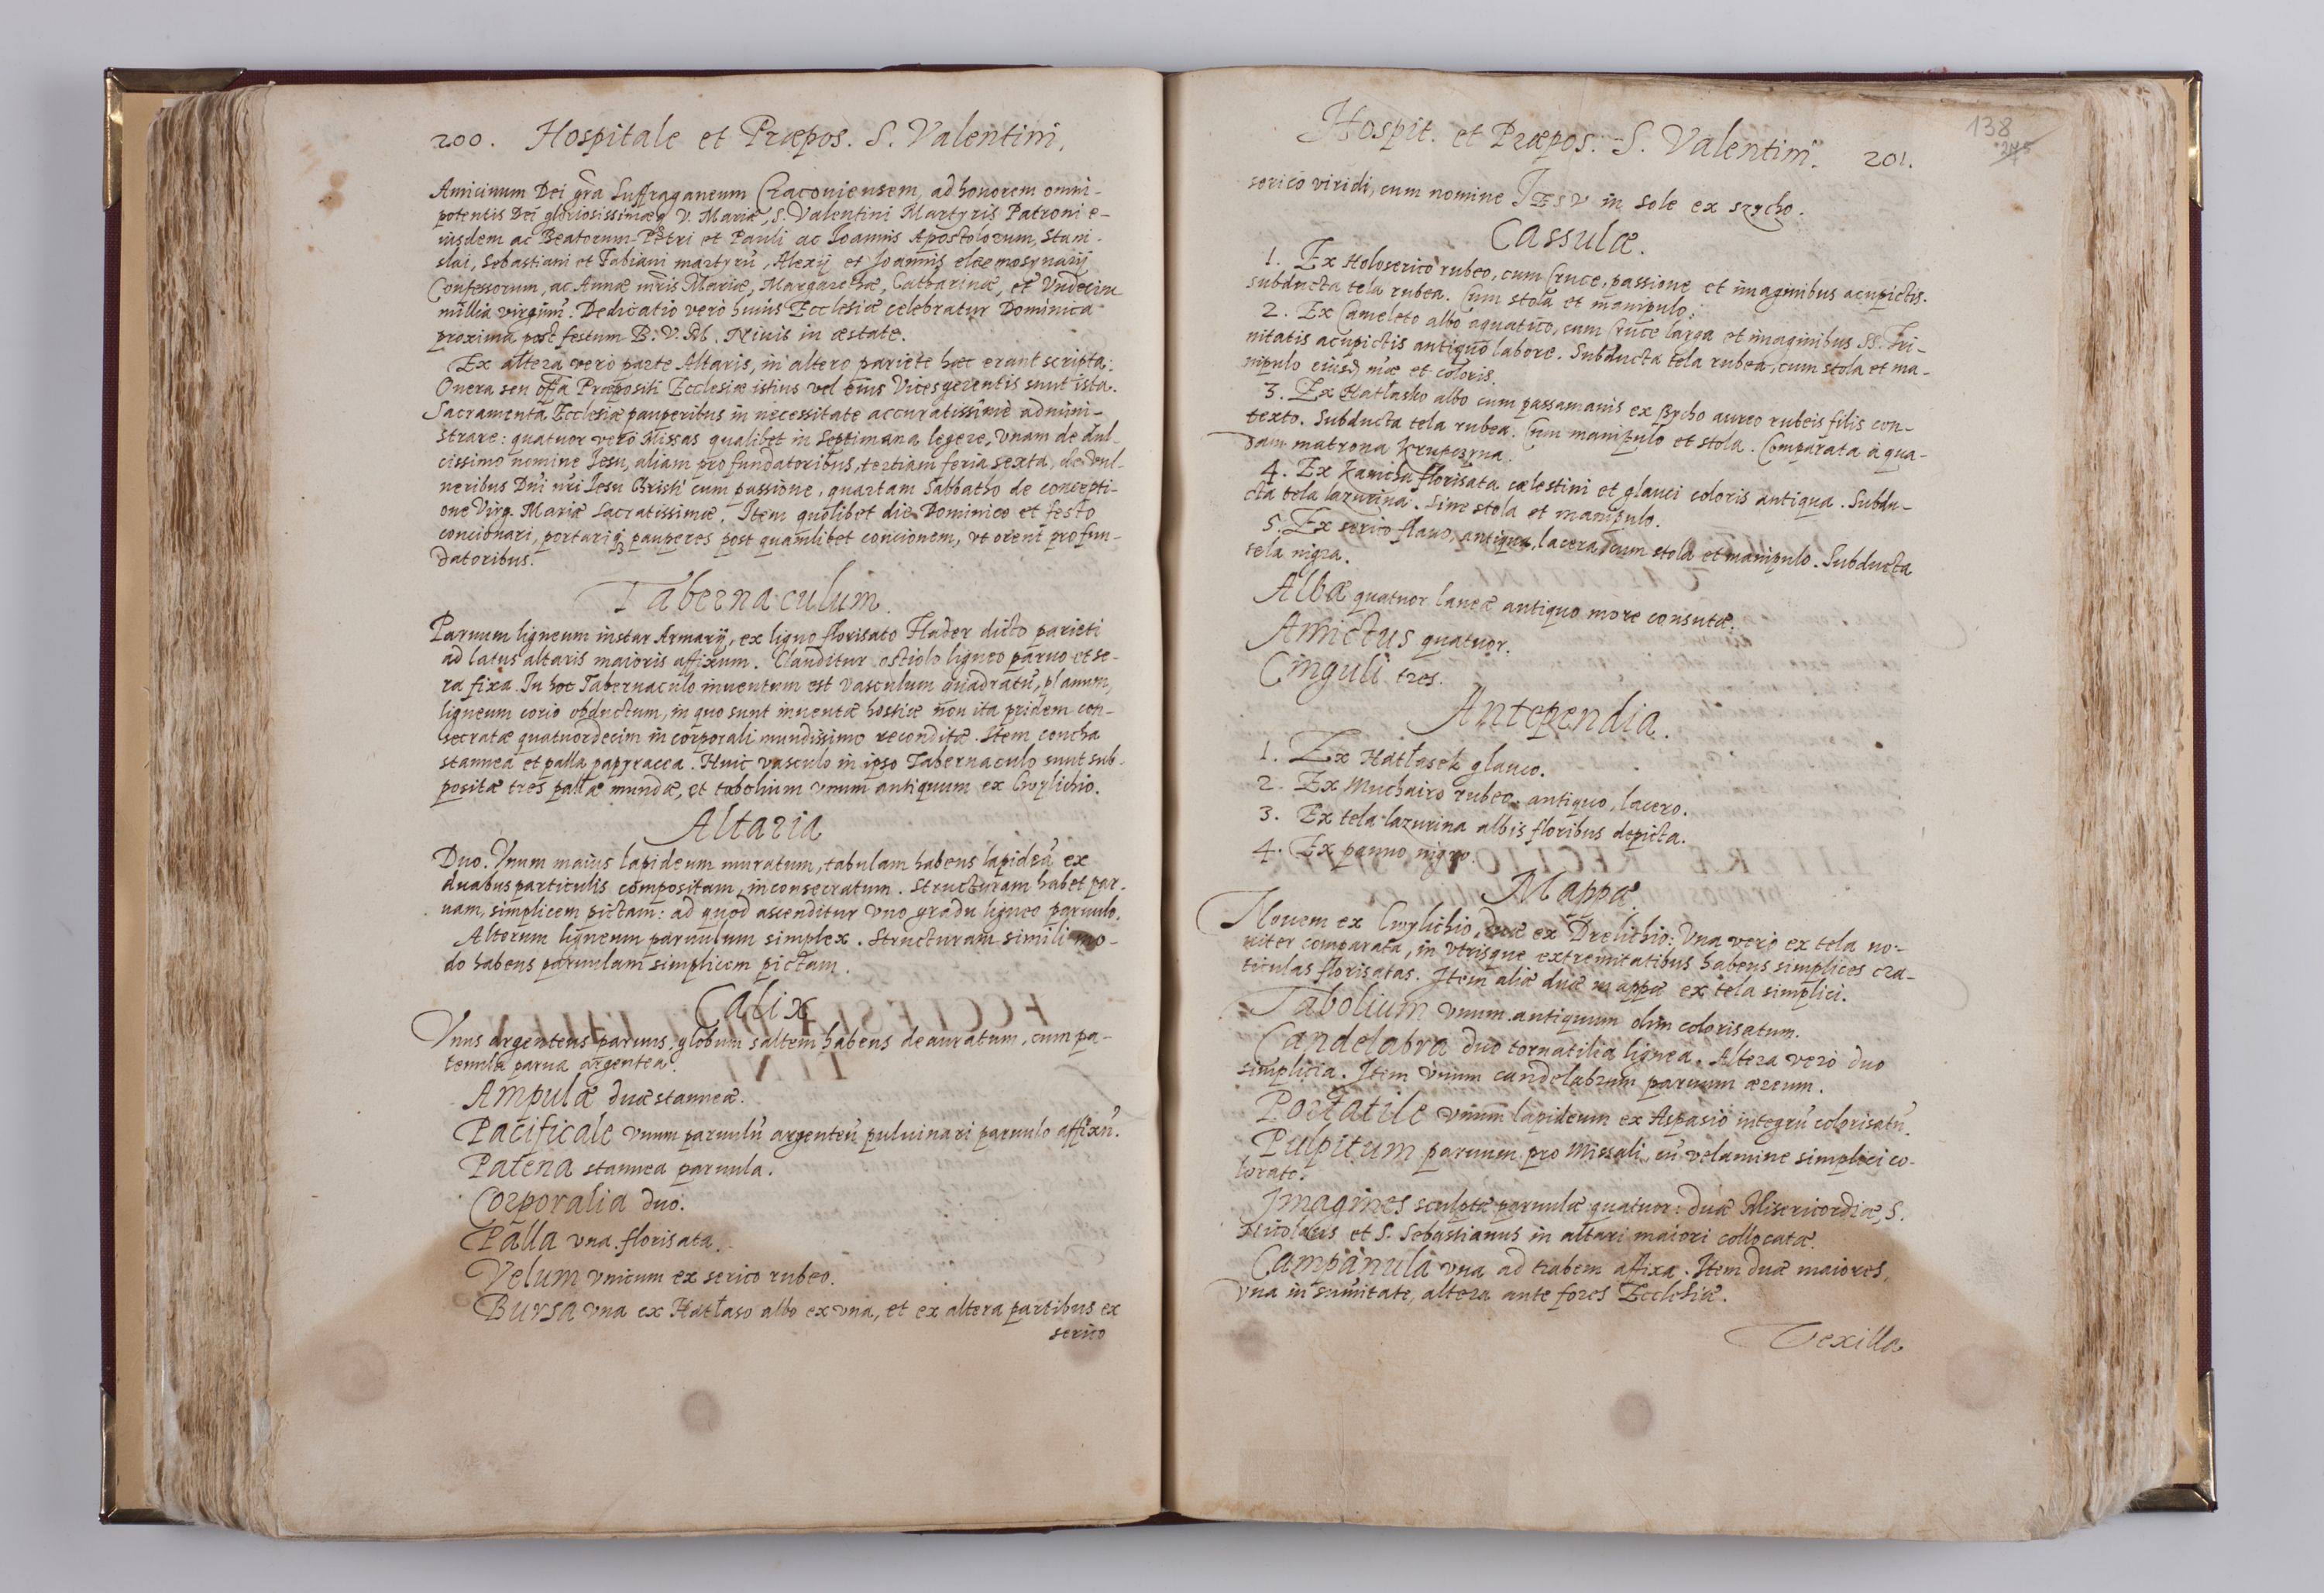 200. Hospitale et Præpos. S. Valentini.
Amicinum Dei gra Suffraganeum Cracouiensem, ad honorem omni-
potentis Dei gloriosissimæq V. Mariæ, S. Valentini Martyris Patroni e-
iusdem ac Beatorum Petri et Pauli ac Joannis Apostolorum, Stani-
slai, Sebastiani et Fabiani martyrū, Alexij et Joannis eleemosynarij
Confessorum, ac Annæ mris Mariæ, Margarethæ, Catharinæ, et Vndecim
millia virginū. Dedicatio vero huius Ecclesiæ celebratur Dominica
proxima post festum B. V. M. Niuis in æstate.
Ex altera vero parte Altaris, in altero pariete hæc erant scripta:
Onera seu offa Præpositi Ecclesiæ istius vel eius Vicesgerentis sunt ista.
Sacramenta Ecclesiæ pauperibus in necessitate accuratissime admini-
strare: quatuor vero Missas qualibet in Septimana legere, Vnam de dul-
cissimo nomine Iesu, aliam pro fundatoribus, tertiam feria sexta, de vul-
neribus Dni nri Iesu Christi cum passione, quartam Sabbatho de concepti-
one Virg. Mariæ Sacratissimæ. Item quolibet die Dominico et festo
concionari, hortariq pauperes post quamlibet concionem, vt orent pro fun-
datoribus.
Tabernaculum.
Paruum ligneum instar Armarij, ex ligno florisato Flader dicto parieti
ad latus altaris maioris affixum. Clauditur ostiolo ligneo paruo et se-
ra fixa. In hoc Tabernaculo inuentum est vasculum quadratū, planum,
ligneum corio obductum, in quo sunt inuentæ hostiæ non ita pridem con-
secratæ quatuordecim in corporali mundissimo reconditæ. Item concha
stannea et palla papyracea. Huic vasculo in ipso Tabernaculo sunt sub-
positæ tres pallæ mundæ, et tobolium vnum antiquum ex Cwylichio.
Altaria
Duo. Vnum maius lapideum muratum, tabulam habens lapideā ex
duabus particulis compositam, inconsecratum. Structuram habet par-
uam, simplicem pictam: ad quod ascenditur vno gradu ligneo paruulo.
Alterum ligneum paruulum simplex. Structuram simili mo-
do habens paruulam simplicem pictam.
Calix
Vnus argenteus paruus, globum saltem habens deauratum, cum pa-
tenula parua argentea.
Ampulæ duæ stanneæ.
Pacificale vnum paruulū argenteū puluinari paruulo affixū.
Patena stannea paruula.
Corporalia duo.
Palla vna florisata.
Velum vnicum ex serico rubeo.
Bursa vna ex Hatłaso albo ex vna, et ex altera partibus ex
serico
138
Hospit. et Præpos. S. Valentini. 201.
serico viridi, cum nomine IESV in sole ex szycho.
Cassulæ.
1. Ex Holoserico rubeo, cum Cruce, passione et imaginibus acupictis.
subducta tela rubea. Cum stola et manipulo.
2. Ex Cameleto albo aquatico, cum Cruce larga et imaginibus SS. Tri-
nitatis acupictis antiquo labore. Subducta tela rubea, cum stola et ma-
nipulo eiusd mæ et coloris.
3. Ex Hatłasko albo cum passamanis ex szycho aureo rubeis filis con-
texto. Subducta tela rubea. Cum manipulo et stola. Comparata a qua-
dam matrona Krupczyna.
4. Ex Kamcha florisata cœlestini et glauci coloris antiqua. Subdu-
cta tela lazurina. Sine stola et manipulo.
5. Ex serico flauo, antiqua, lacera, cum stola et manipulo. Subducta
tela nigra.
Albæ quatuor laneæ antiquo more consutæ.
Amictus quatuor.
Cinguli tres.
Antependia.
1. Ex Hatłasek glauco.
2. Ex Muchairo rubeo, antiquo, lacero.
3. Ex tela lazurina albis floribus depicta.
4. Ex panno nigro.
Mappæ.
Nouem ex Cwylichio, duæ ex Drelichio: Vna vero ex tela no-
uiter comparata, in vtrisque extremitatibus habens simplices cra-
ticulas florisatas. Item aliæ duæ mappæ ex tela simplici.
Tabolium vnum antiquum olim colorisatum.
Candelabra duo tornatilia lignea. Altera vero duo
simplicia. Item vnum candelabrum paruum æreum.
Portatile vnum lapideum ex Aspasio integrū colorisatū.
Pulpitum paruum pro Missali, cū velamine simplici co-
lorato.
Imagines sculptæ paruulæ quatuor: duæ Misericordiæ, S.
Nicolaus et S. Sebastianus in altari maiori collocatæ.
Campanula vna ad trabem affixa. Item duæ maiores,
vna in sumitate, altera ante fores Ecclesiæ.
Vexilla